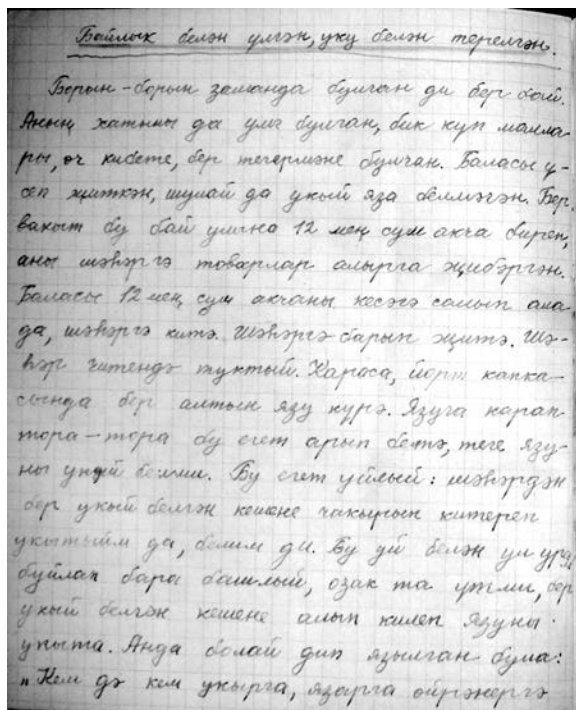 Байлык белән үлгән, уку белән терелгән.
Борын-борын заманда булган ди бер бай.
Аның хатыны да улы булган, бик күп малла-
ры, өч кибете, бер тегермәне булган. Баласы ү-
сеп җиткән, шулай да укый яза белмәгән. Бер-
вакыт бу бай улына 12 мең сум акча биреп,
аны шәһәргә товарлар алырга җибәргән.
Баласы 12 мең сум акчаны кесәгә салып ала
да, шәһәргә китә. Шәһәргә барып җитә. Шә-
һәр читендә туктый. Караса, йорт капка-
сында бер алтын язу күрә. Язуга карап
тора-тора бу егет арып бетә, теге язу-
ны укый белми. Бу егет уйлый: шәһәрдән
бер укый белгән кешене чакырып китереп
укытыйм да, белим ди. Бу уй белән ул урам
буйлап бара башлый, озак та үтми, бер
укый белгән кешене алып килеп язуны
укыта. Анда болай дип язылган була:
„Кем дә кем укырга, язарга өйрәнергә